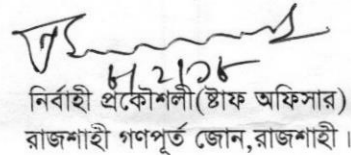 নির্বাহী প্রকৌশলী(ষ্টাফ অফিসার)
রাজশাহী গণপূর্ত জোন,রাজশাহী।